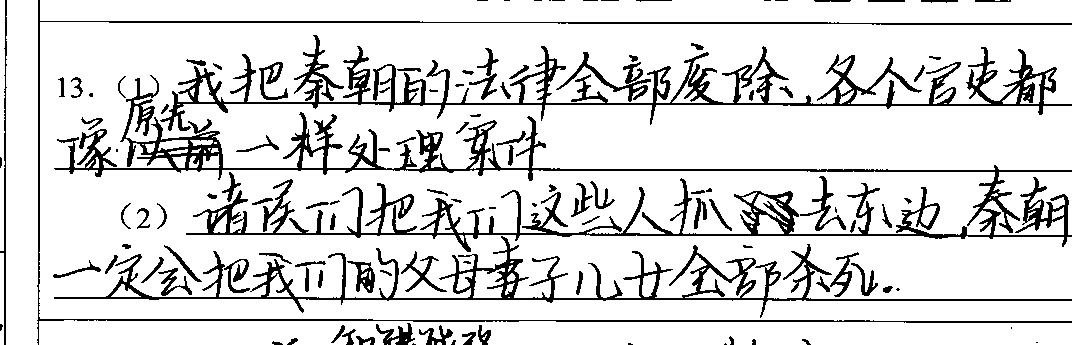 13. (1) 我把秦朝的法律全部废除,各个官吏都
像原先一样处理案件
(2) 诸侯们把我们这些人抓去东边,秦朝
一定会把我们的父母妻子儿女全部杀死。